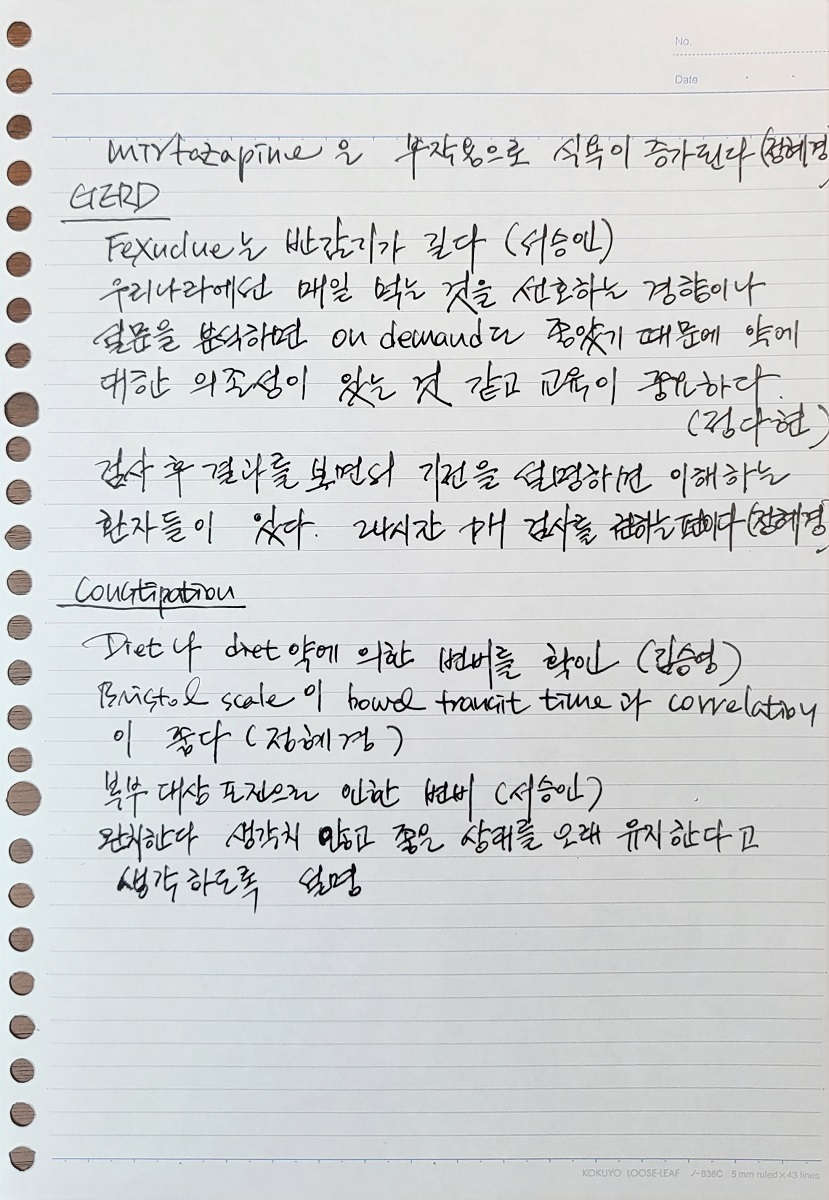 No.
Date
Mirtazapine 은 부작용으로 식욕이 증가된다 (정혜경)
GERD
Fexuclue는 반감기가 길다 (서승인)
우리나라에선 매일 먹는 것을 선호하는 경향이나
설문을 분석하면 on demand도 좋았기 때문에 약에
대한 의존성이 있는 것 같고 교육이 중요하다.
(정다현)
검사 후 결과를 보면서 기전을 설명하면 이해하는
환자들이 있다. 24시간 pH 검사를 권하는 편이다 (정혜경)
Constipation
Diet 나 diet 약에 의한 변비를 확인 (김승영)
Bristol scale 이 bowel transit time과 correlation
이 좋다 (정혜경)
복부 대상포진으로 인한 변비 (서승인)
완치한다 생각치 않고 좋은 상태를 오래 유지한다고
생각하도록 설명
KOKUYO LOOSE-LEAF ノ-836C 5 mm ruled×43 lines